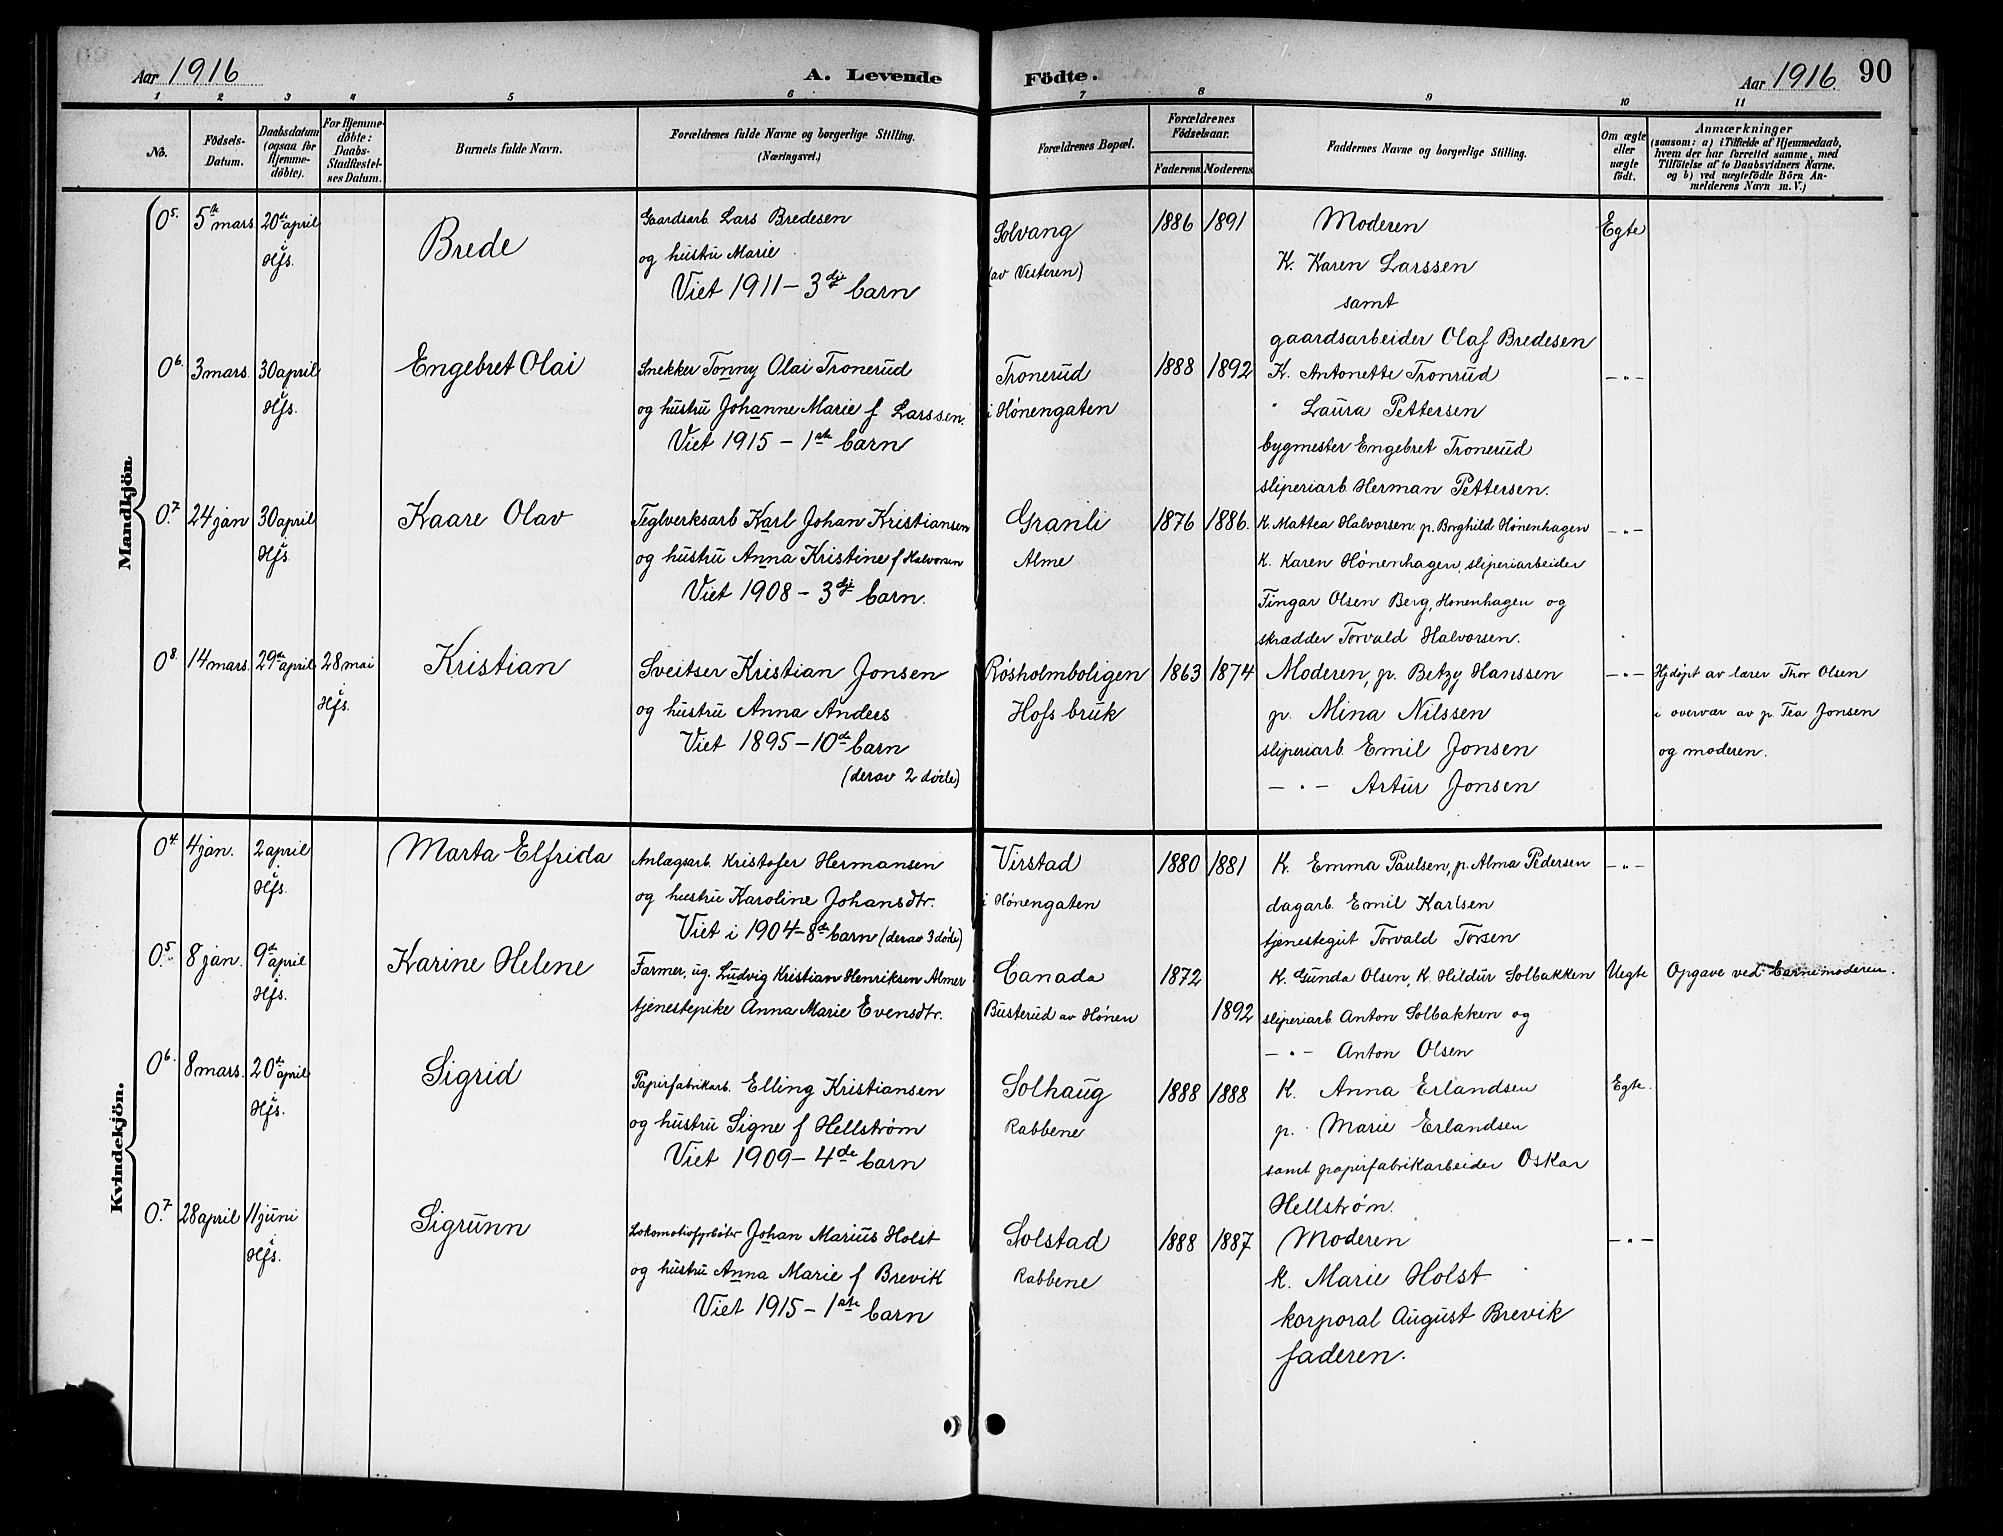 Aar 1916 A. Levende Födte. Aar 1916 90
1 2 3 4 5 6 7 8 9 10 11
No. Födsels-Datum. Daabsdatum (ogsaa for Hjemme-döbte). For Hjemme-döbte: Daabs-Stadfæstel-ses Datum. Barnets fulde Navn. Forældrenes fulde Navne og borgerlige Stilling. (Næringsvei.) Forældrenes Bopæl. Forældrenes Födselsaar. Faderens Moderens Faddernes Navne og borgerlige Stilling. Om ægte eller uægte födt. Anmærkninger (saasom: a) i Tilfælde af Hjemmedaab, hvem der har forrettet samme, med Tilföielse af to Daabsvidners Navne. og b) ved uægtefödte Börn An-melderens Navn m. V.)
Mandkjön.
05. 5te mars 20de april Hfs. Brede Gaardsarb. Lars Bredesen Solvang 1886 1891 Moderen Egte
og hustru Marie (av Vesteren) K. Karen Larssen
Viet 1911 - 3dje barn samt
gaardsarbeider Olaf Bredesen
06. 3 mars. 30 april Hfs. Engebret Olai Snekker Tonny Olai Tronerud Tronerud 1888 1892 K. Antonette Tronrud — " —
og hustru Johanne Marie f Larssen. i Hønengaten " Laura Pettersen
Viet 1915 - 1ste barn bygmester Engebret Tronerud
sliperiarb. Herman Pettersen.
07. 24 jan 30 april Hfs. Kaare Olav Teglverksarb Karl Johan Kristiansen Granli 1876 1886. K. Mattea Halvorsen, p. Borghild Hønenhagen — " —
og hustru Anna Kristine f Halvorsen Alme K. Karen Hønenhagen, sliperiarbeider
Viet 1908 - 3dje barn. Fingar Olsen Berg, Hønenhagen og
skrædder Torvald Halvorsen.
08. 14 mars. 29de april 28 mai Hfs. Kristian Sveitser Kristian Jonsen Røsholmboligen 1863 1874 Moderen, p. Betzy Hanssen — " — Hjdøpt av lærer Thor Olsen
og hustru Anna Anders Hofs bruk p. Mina Nilssen i overvær av p. Tea Jonsen
Viet 1895 - 10de barn sliperiarb Emil Jonsen og moderen.
(derav 2 døde) — " — Artur Jonsen
Kvindekjön.
04. 4 jan. 2 april Hfs. Marta Elfrida Anlægsarb. Kristofer Hermansen Virstad 1880 1881 K. Emma Paulsen, p. Alma Pedersen — " —
og hustru Karoline Johansdtr. i Hønengaten dagarb. Emil Karlsen
Viet i 1904 - 8de barn (derav 3 døde) tjenestegut Torvald Torsen
05. 8 jan. 9de april Hfs. Karine Helene Farmer, ug. Ludvig Kristian Henriksen Almer Canada 1872 K. Gunda Olsen, K. Hildur Solbakken Uegte Opgave ved barnemoderen.
tjenestepike Anna Marie Evensdtr. Busterud av Hønen 1892 sliperiarb. Anton Solbakken og
— " — Anton Olsen
06. 8 mars. 20de april Hfs. Sigrid Papirfabrikarb. Elling Kristiansen Solhaug 1888 1888 K. Anna Erlandsen Egte.
og hustru Signe f Hellstrøm Rabbene p. Marie Erlandsen
Viet 1909 - 4de barn samt papirfabrikarbeider Oskar
Hellstrøm.
07. 28 april 11 juni Hfs. Sigrunn Lokomotivfyrbøter Johan Marius Holst Solstad 1888 1887 Moderen — " —
og hustru Anna Marie f Brevik Rabbene K. Marie Holst
Viet 1915 - 1ste barn korporal August Brevik
faderen.